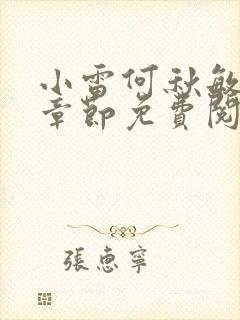 小雷何秋敏
章節免費閱
張惠寧